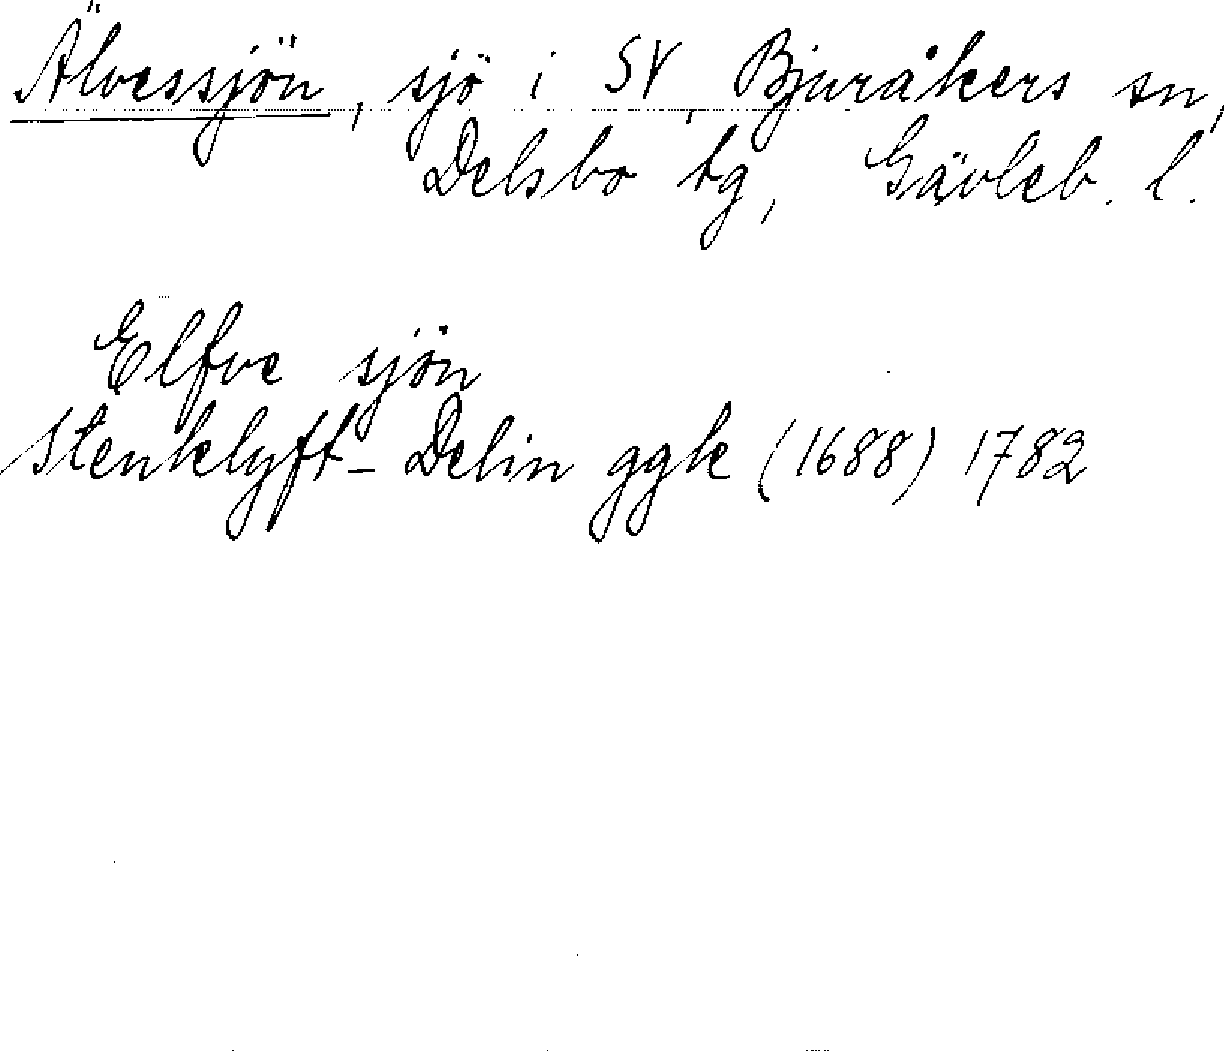 Älvessjön, sjö i SV, Bjuråkers sn,
Delsbo tg, Gävleb. l.
Elfve sjön
Stenklyft - Delin ggk (1688) 1782